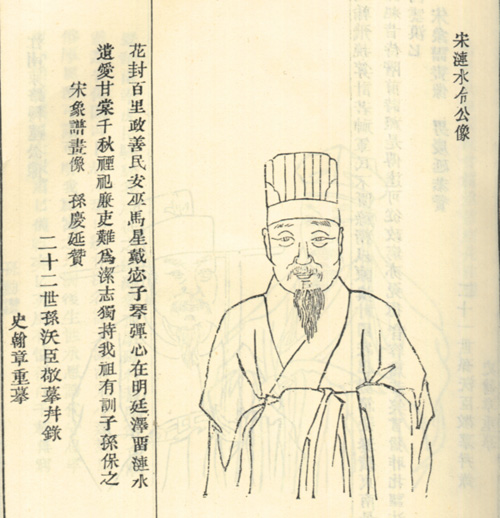 宋漣水令公像
花封百里政善民安巫馬星戴宓子琴彈心在明廷澤留漣水
遺愛甘棠千秋禋祀廉吏難爲潔志獨持我祖有訓子孫保之
宋象譜畫像 孫慶延贊
二十二世孫沃臣敬摹幷錄
史翰章重摹